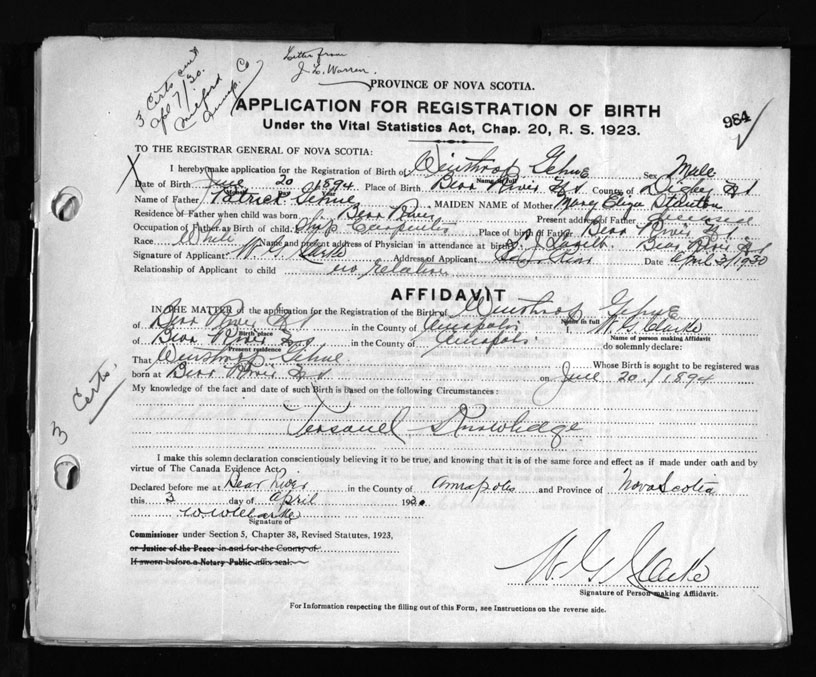 3 Certs
Apl 7/30.
Letter from
J. L. Warren.
984
PROVINCE OF NOVA SCOTIA.
APPLICATION FOR REGISTRATION OF BIRTH
Under the Vital Statistics Act, Chap. 20, R. S. 1923.
TO THE REGISTRAR GENERAL OF NOVA SCOTIA:
I hereby make application for the Registration of Birth of Winthrop Gehue Sex Male
Name in full
Date of Birth June 20 1894 Place of Birth Bear River N S County of Digby N S
Month Day Year
Name of Father Patrick Gehue MAIDEN NAME of Mother Mary Eliza Stanton
Residence of Father when child was born Bear River Present address of Father Deceased
Occupation of Father at Birth of child Ship Carpenter Place of birth of Father Bear River N S
Race White Name and present address of Physician in attendance at birth J. Bear River N S
Signature of Applicant W. G. Clarke Address of Applicant Bear River Date April 3/1930
Relationship of Applicant to child no relation
AFFIDAVIT
IN THE MATTER of the application for the Registration of the Birth of Winthrop Gehue
Name in full
of Bear River N S in the County of Annapolis I W. G. Clarke
Birth place Name of person making Affidavit
of Bear River N S in the County of Annapolis do solemnly declare:
Present residence
That Winthrop Gehue Whose Birth is sought to be registered was
born at Bear River N S on June 20 / 1894
My knowledge of the fact and date of such Birth is based on the following Circumstances:
3 Certs.
Personel Knowledge
I make this solemn declaration conscientiously believing it to be true, and knowing that it is of the same force and effect as if made under oath and by
virtue of The Canada Evidence Act.
Declared before me at Bear River in the County of Annapolis and Province of Nova Scotia
this 3 day of April 1930
W. W. Clarke
Signature of
Commissioner under Section 5, Chapter 38, Revised Statutes, 1923,
or Justice of the Peace in and for the County of
If sworn before a Notary Public affix seal.
W. G. Clarke
Signature of Person making Affidavit.
For Information respecting the filling out of this Form, see Instructions on the reverse side.